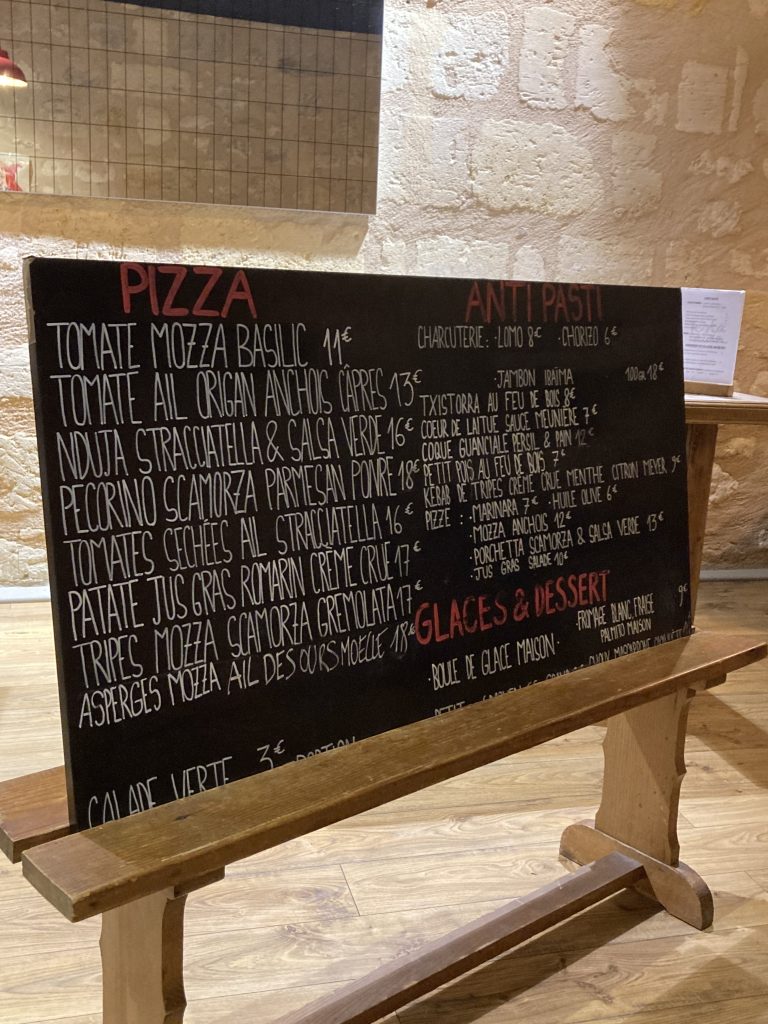 PIZZA
TOMATE MOZZA BASILIC 11€
TOMATE AIL ORIGAN ANCHOIS CÂPRES 13€
NDUJA STRACCIATELLA & SALSA VERDE 16€
PECORINO SCAMORZA PARMESAN POIVRE 18€
TOMATES SECHÉES AIL STRACCIATELLA 16€
PATATE JUS GRAS ROMARIN CRÈME CRUE 17€
TRIPES MOZZA SCAMORZA GREMOLATA 17€
ASPERGES MOZZA AIL DES OURS MOELLE 18€
SALADE VERTE 3€ PORTION
ANTI PASTI
CHARCUTERIE: · LOMO 8€ · CHORIZO 6€
· JAMBON IBAÏMA 100GR 18€
TXISTORRA AU FEU DE BOIS 8€
COEUR DE LAITUE SAUCE MEUNIÈRE 7€
COQUE GUANCIALE PERSIL & PAIN 12€
PETIT POIS AU FEU DE BOIS 7€
KEBAB DE TRIPES CRÈME CRUE MENTHE CITRON MEYER 9€
PIZZE : · MARINARA 7€ · HUILE OLIVE 6€
· MOZZA ANCHOIS 12€
· PORCHETTA SCAMORZA & SALSA VERDE 13€
· JUS GRAS SALADE 10€
GLACES & DESSERT
· FROMAGE BLANC FRAISE 9€
PALMITO MAISON
· BOULE DE GLACE MAISON ·